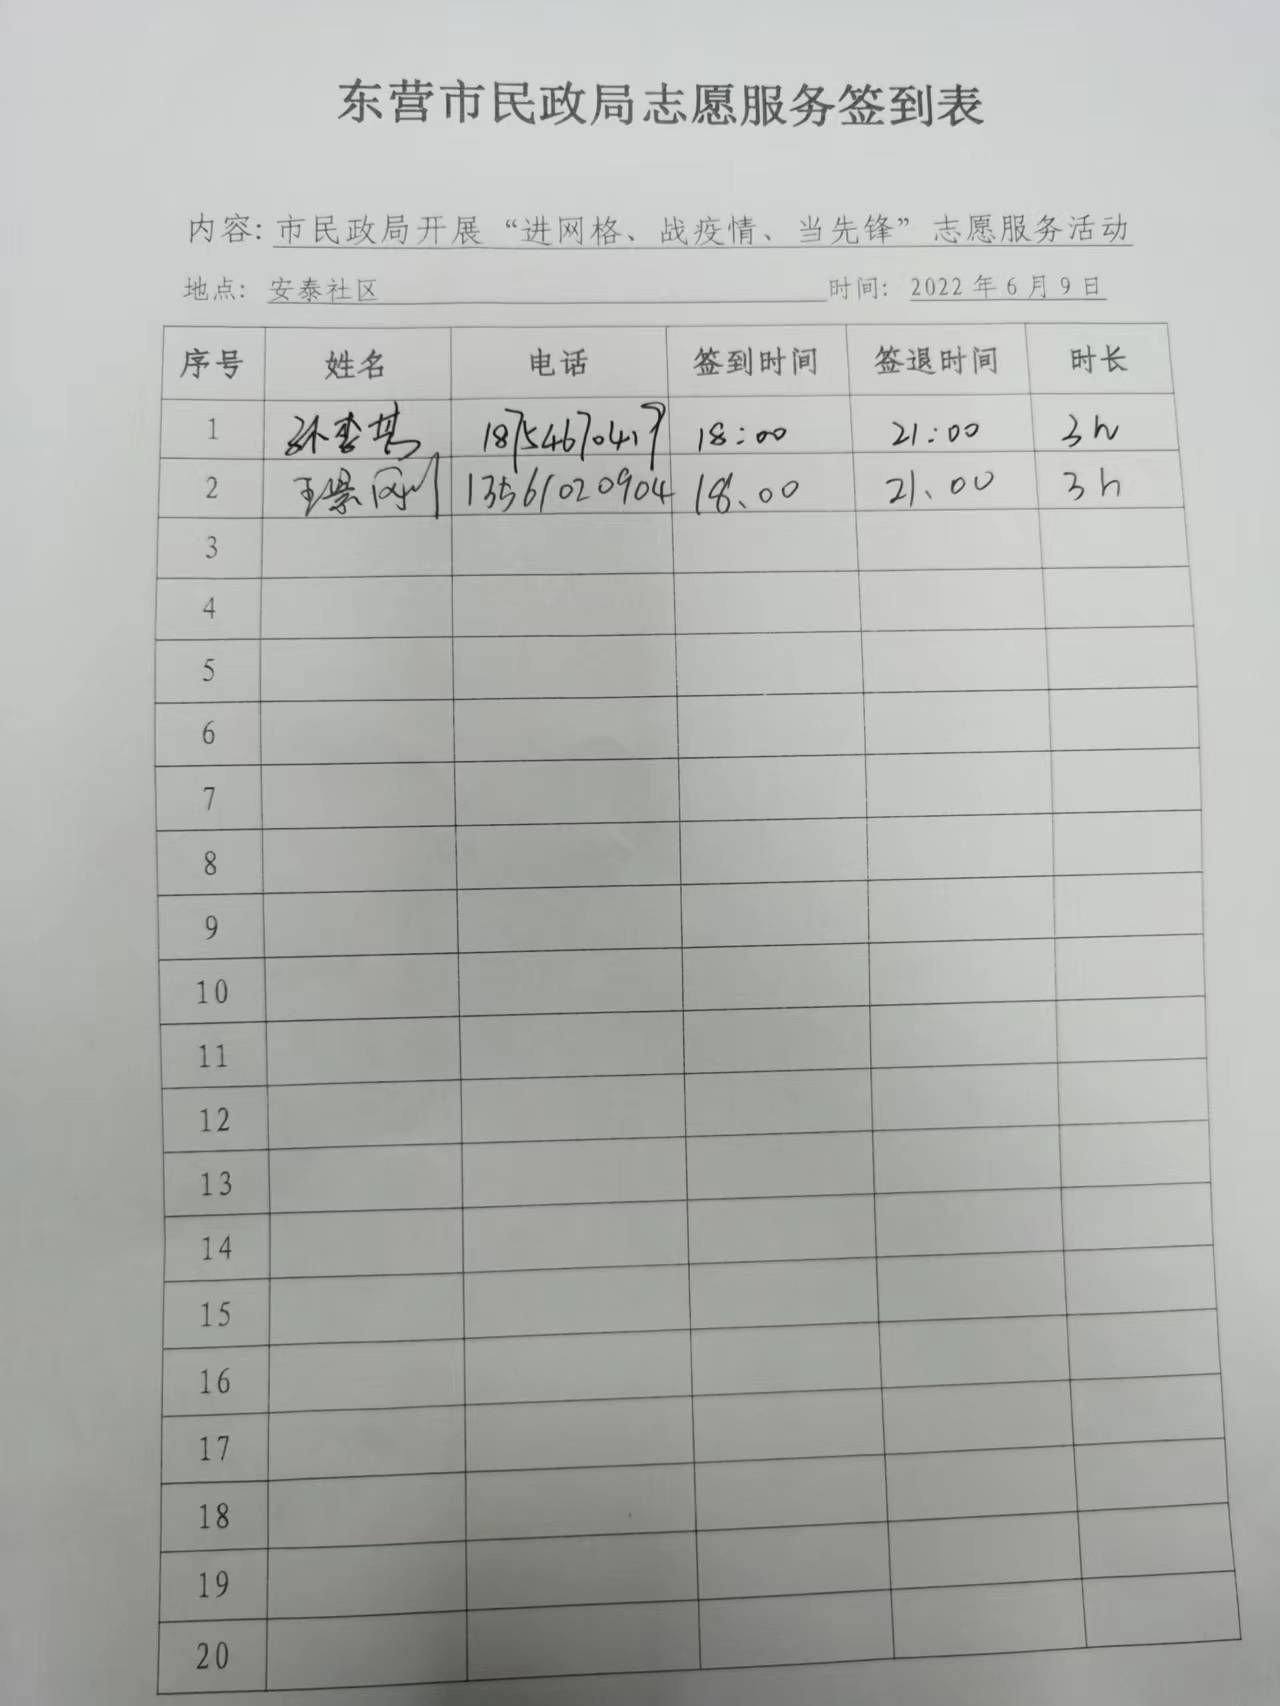 东营市民政局志愿服务签到表
内容: 市民政局开展“进网格、战疫情、当先锋”志愿服务活动
地点: 安泰社区 时间: 2022年6月9日
序号 姓名 电话 签到时间 签退时间 时长
1 孙 18754670417 18:00 21:00 3h
2 王景刚 13561020904 18、00 21、00 3h
3
4
5
6
7
8
9
10
11
12
13
14
15
16
17
18
19
20